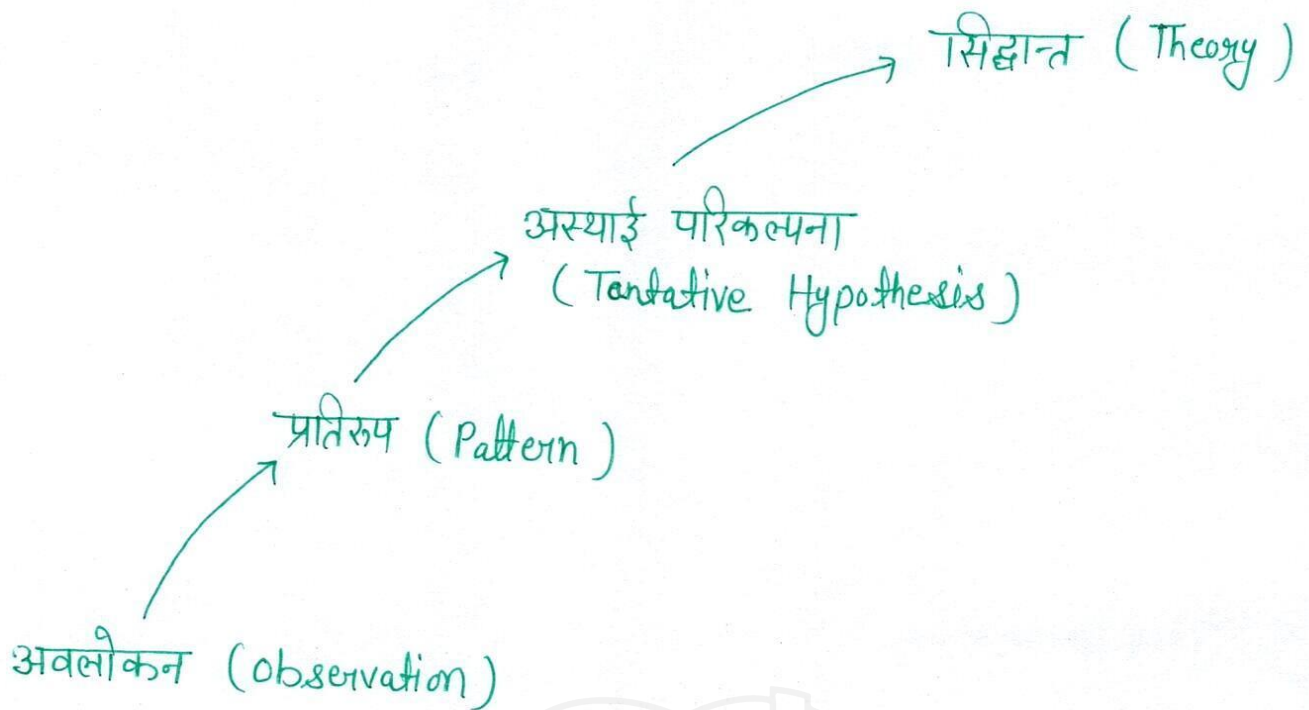 सिद्धान्त ( Theory )
अस्थाई परिकल्पना
( Tentative Hypothesis )
प्रतिरुप ( Pattern )
अवलोकन ( Observation )